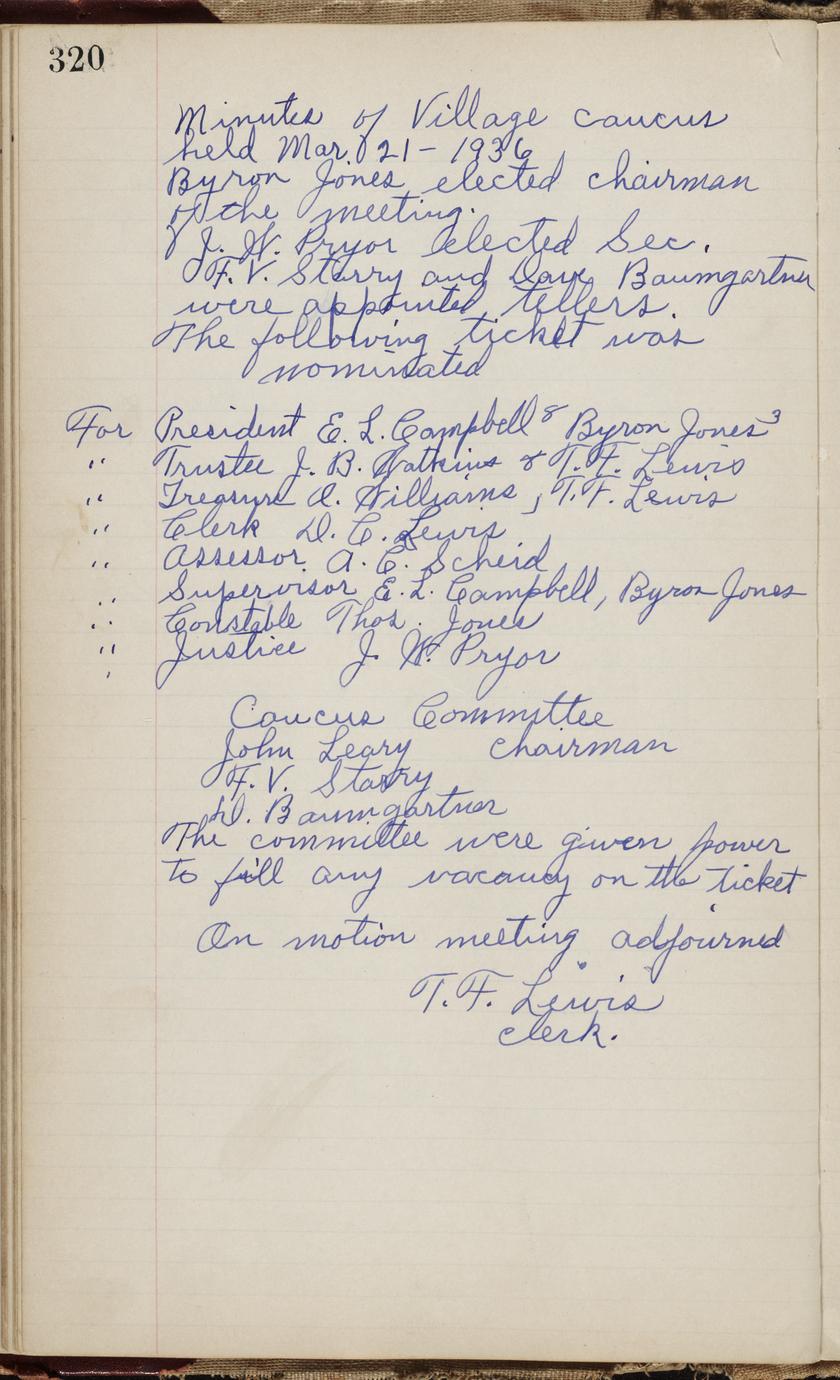 320
Minutes of Village caucus
held Mar. 21 - 1936
Byron Jones elected chairman
of the meeting.
J. W. Pryor elected Sec.
F. V. Starry and Dave Baumgartner
were appointed tellers.
The following ticket was
nominated
For President E. L. Campbell 8 Byron Jones 3
" Trustee J. B. Watkins & T. F. Lewis
" Treasure A. Williams, T. F. Lewis
" Clerk D. C. Lewis
" Assessor. A. C. Scheid
" Supervisor E. L. Campbell, Byron Jones
" Constable Thos. Jones
" Justice J. W. Pryor
Caucus Committee
John Leary chairman
F. V. Starry
D. Baumgartner
The committee were given power
to fill any vacancy on the ticket
On motion meeting adjourned
T. F. Lewis
clerk.